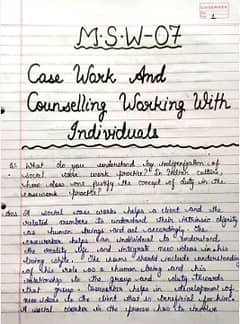 1
M.S.W-07
Case Work And
Counselling Working With
Individuals
What do you understand by indigenization of
social case work practice? In Indian culture,
how does one justify the concept of duty in the
casework practice?
Ans A social case work helps a client and the
related members to understand their intrinsic dignity
as human beings and act accordingly. The
caseworker helps an individual to understand
the reality of life and integrate new ideas in his
being style. The views should include understanding
of his role as a human being and his
relationship to the group and duty towards
that group. Caseworker helps in development of
new ideas to the client that is beneficial for him.
A social worker in the process has to involve